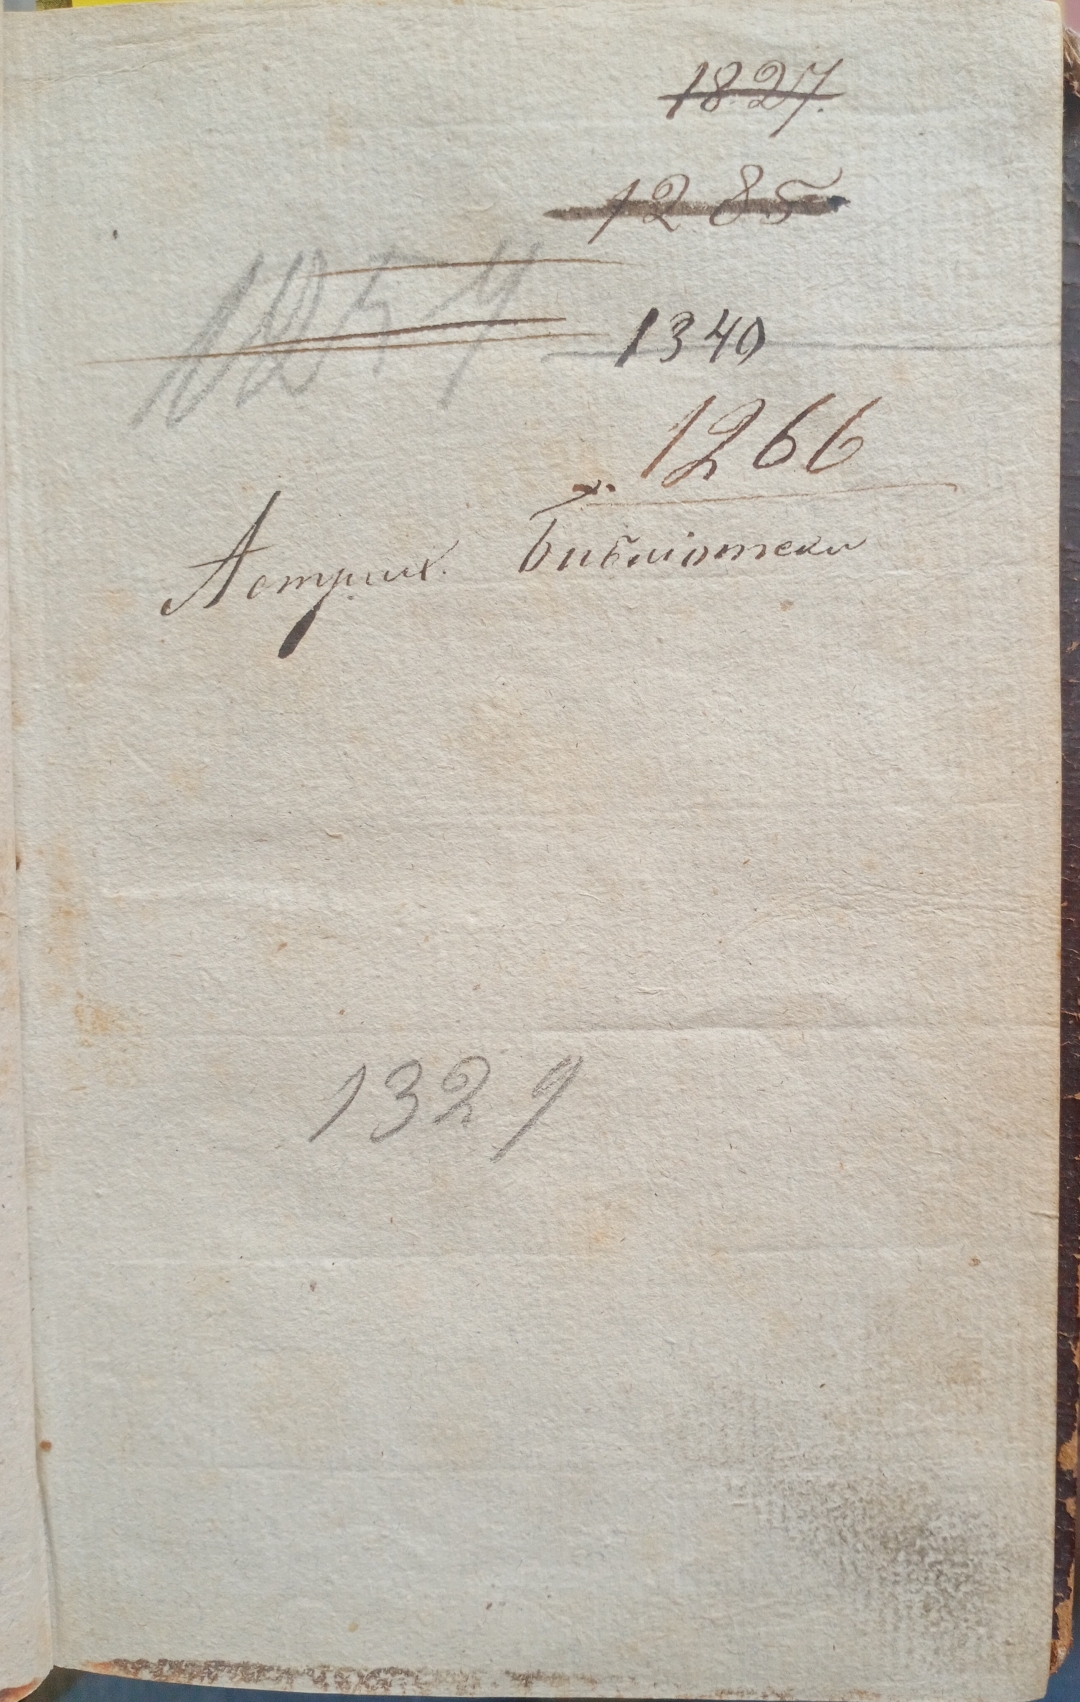 1827.
1285
1254
1340
1266
Астрих. Библіотеки
1329